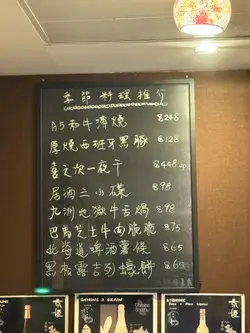 季節料理推介
A5和牛薄燒 $248
厚燒西班牙黑豚 $128
喜之次一夜干 $448up
居酒三小碟 $98
九洲地獄牛舌焗 $98
巴馬芝士牛肉脆脆 $75
北海道啤酒薯條 $65
黑松露吉列蠔餅 $65